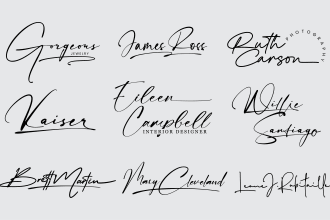 Gorgeous
JEWELRY
James Ross
Ruth
Carson
PHOTOGRAPHY
Kaiser
Eileen
Campbell
INTERIOR DESIGNER
Willie
Santiago
Brett Martin
Mary Cleveland